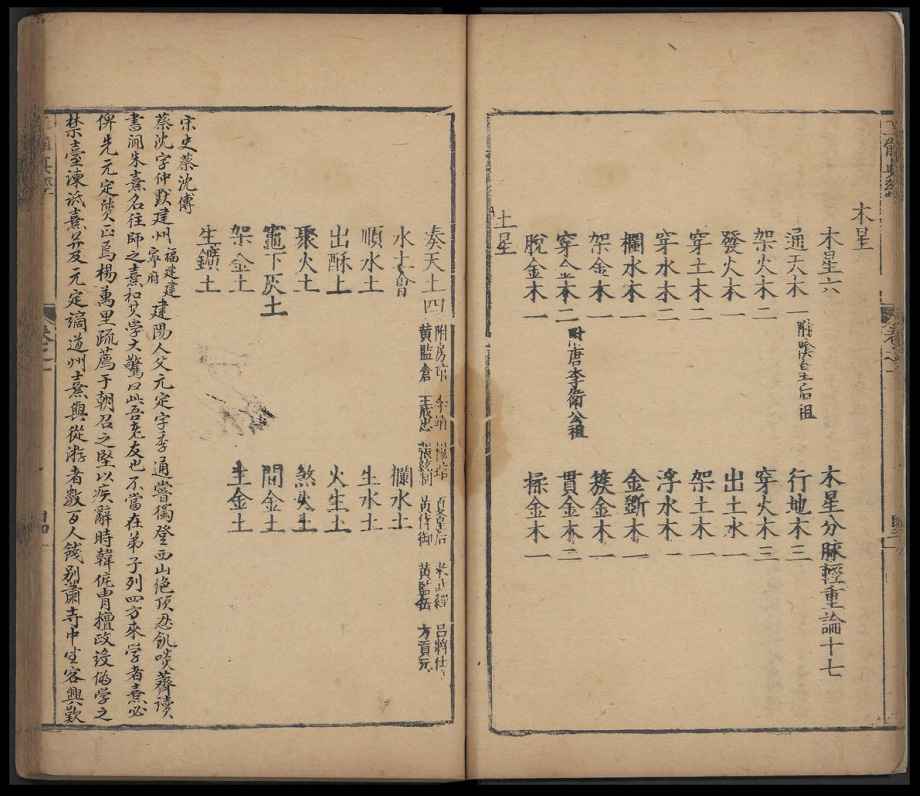 木星
木星六 木星分脉輕重論十七
通天木一 行地木三
架火木二 穿火木三
發火木一 出土水一
穿土木二 架土木一
穿水木二 浮水木一
欄水木一 金斷木一
架金木一 簇金木一
穿金木二 附唐李衛公祖 貫金木二
脫金木一 揉金木一
土星
湊天土四
附房琯 李靖 夏皇后 米武經 呂將仕
黃監倉 黃侍御 黃監岳 方貢元
水土曾 欄水土
順水土 生水土
出酥土 火生土
聚火土 煞火土
竈下灰土 間金土
架金土 生金土
生鑛土
宋史蔡沈傳
蔡沈字仲默建州福建建寧府建陽人父元定字季通嘗獨登西山絕頂忍飢啖薺讀
書聞朱熹名往師之熹扣其学大驚曰此吾老友也不當在弟子列四方來学者熹必
俾先元定質正焉楊萬里疏薦于朝召之堅以疾辭時韓侂胄擅政設偽学之
禁臺諫詆熹并及元定謫道州熹與從游者數百人餞別蕭寺中坐客興歎